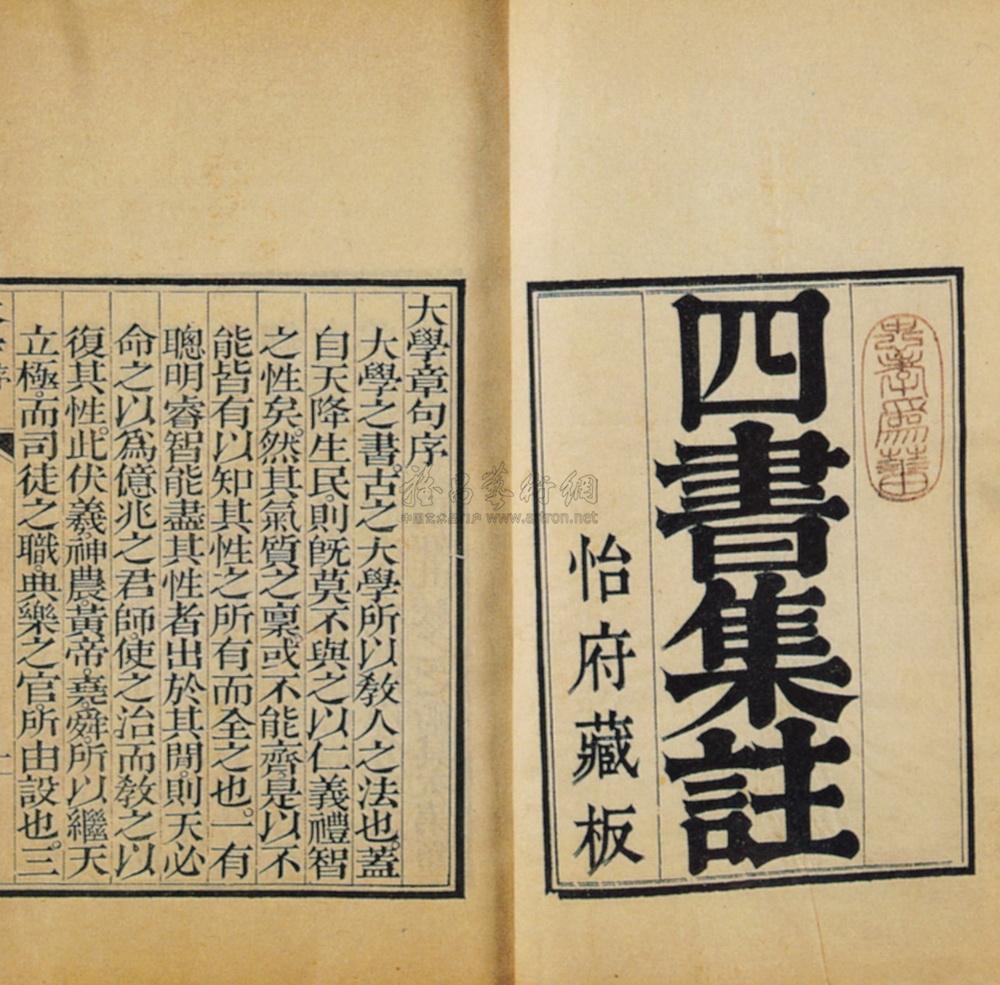 四書集註
怡府藏板
大學章句序
大學之書。古之大學所以敎人之法也。蓋
自天降生民。則旣莫不與之以仁義禮智
之性矣。然其氣質之稟。或不能齊。是以不
能皆有以知其性之所有而全之也。一有
聰明睿智能盡其性者出於其閒。則天必
命之以爲億兆之君師。使之治而敎之。以
復其性。此伏羲。神農。黃帝。堯。舜。所以繼天
立極。而司徒之職。典樂之官。所由設也。三
雅昌藝術網
中国艺术品门户 www.artron.net